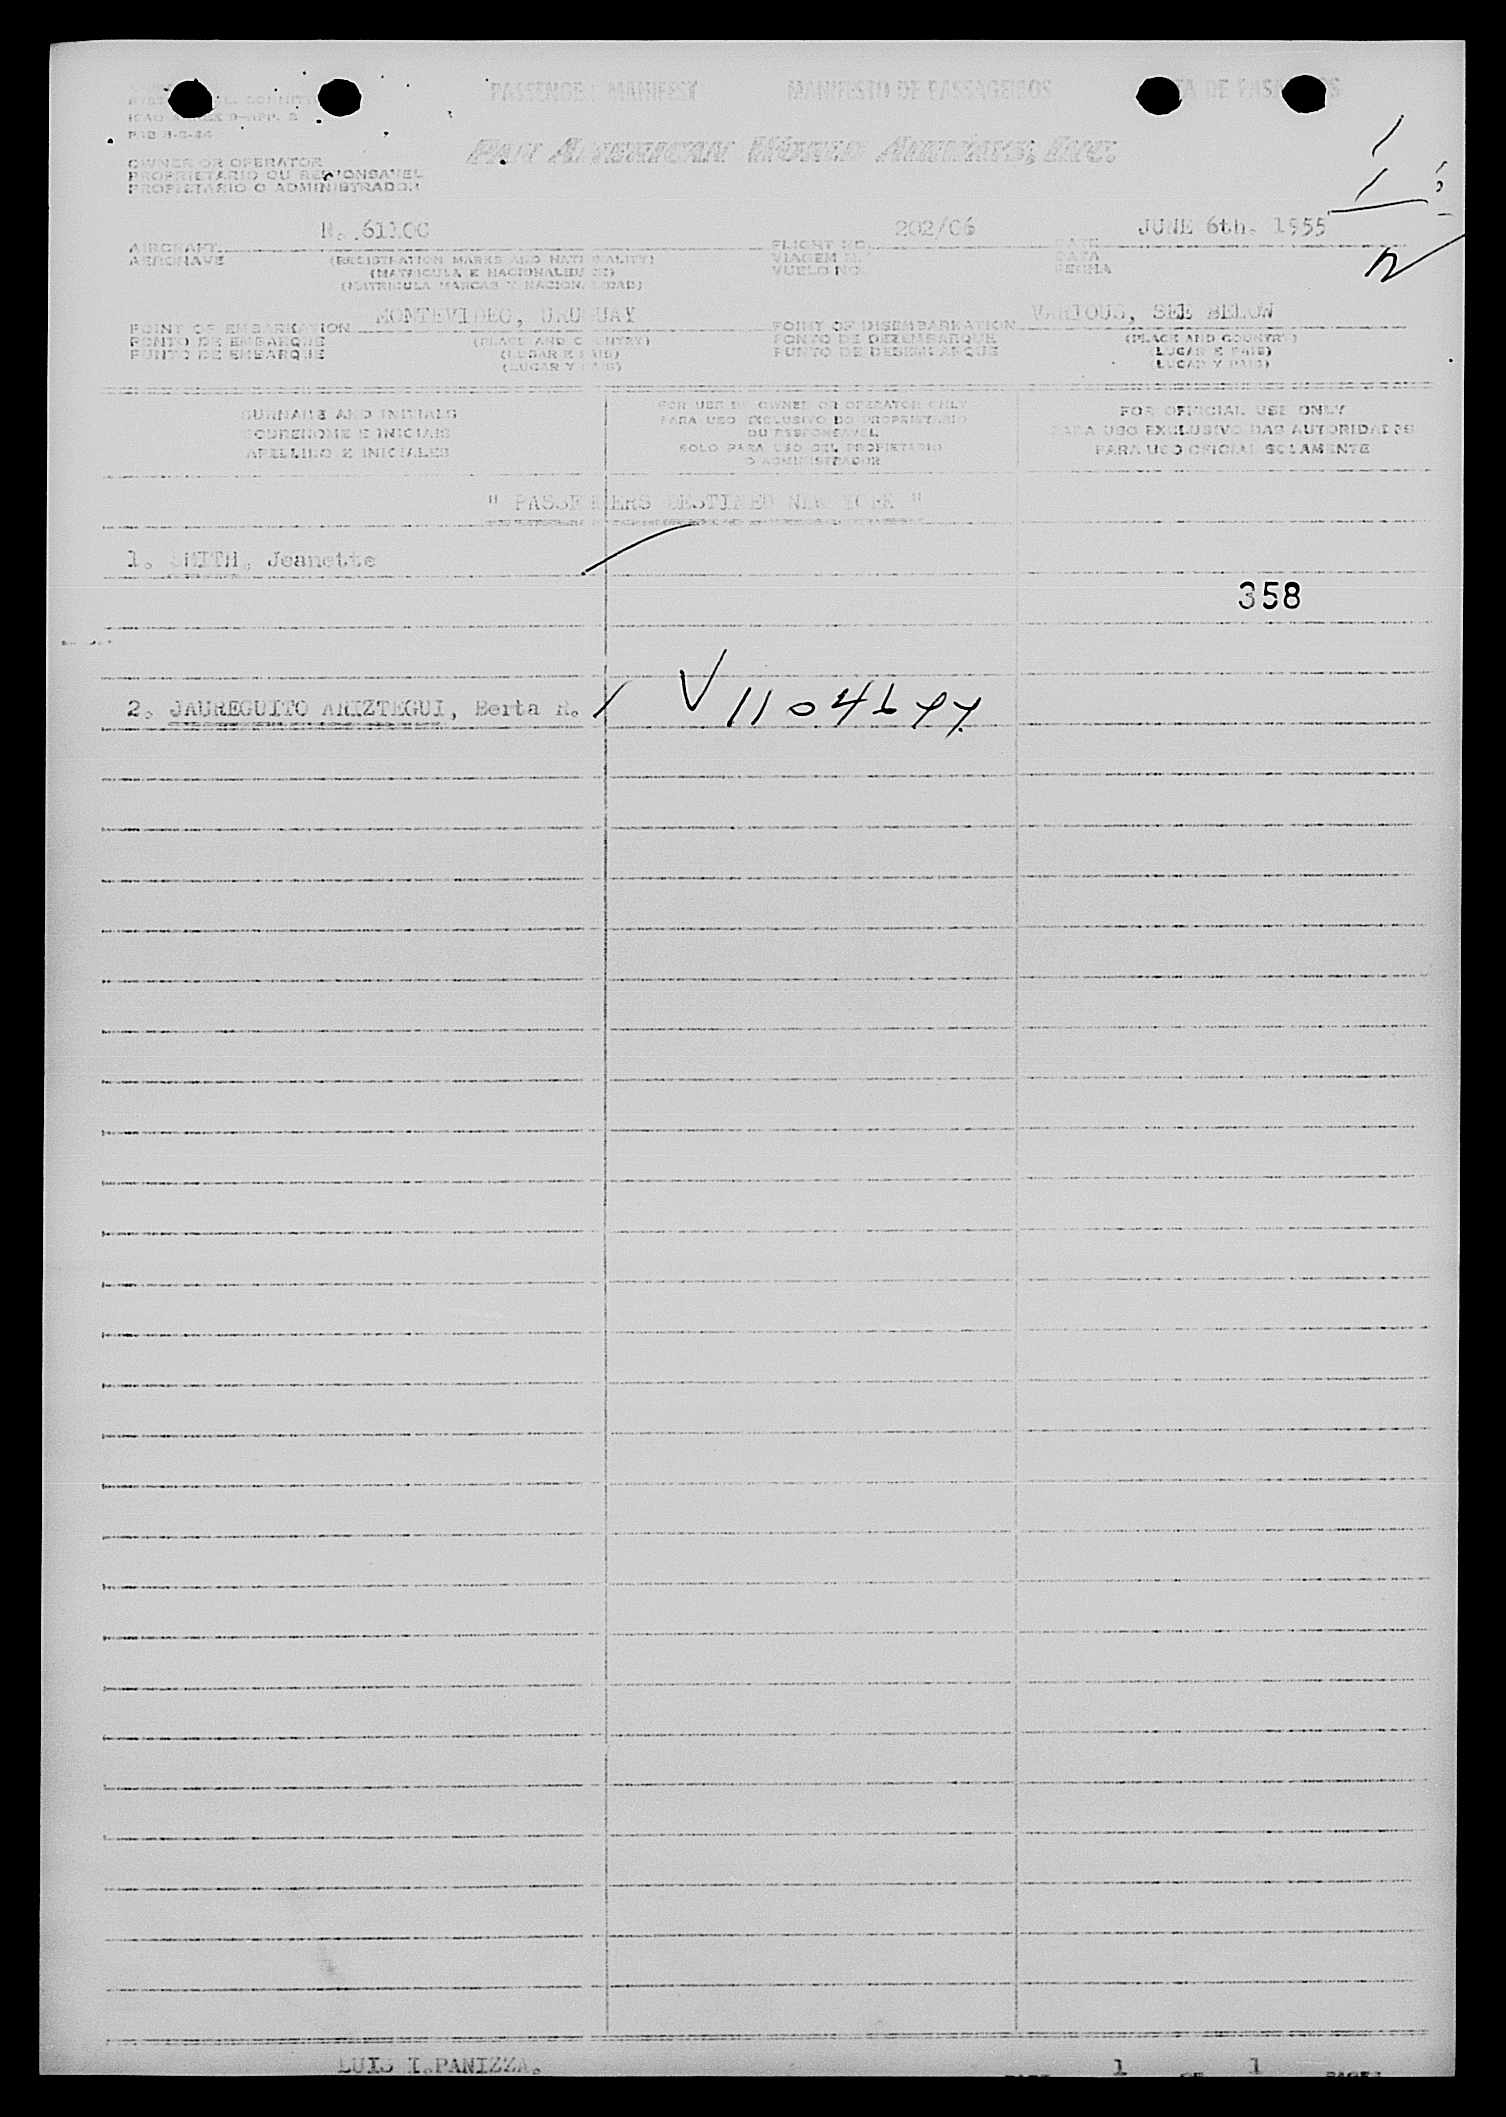 PASSENGER MANIFEST MANIFESTO DE PASSAGEIROS DE PASAJEROS
PAN AMERICAN WORLD AIRWAYS, INC.
OWNER OR OPERATOR
PROPRIETARIO OU RESPONSAVEL
PROPIETARIO O ADMINISTRADOR
AIRCRAFT N. 6110C FLIGHT NO. 202/06 DATE JUNE 6th. 1955
AERONAVE (REGISTRATION MARKS AND NATIONALITY) VIAGEM N. DATA
(MATRICULA E NACIONALIDADE) VUELO NO. FECHA
(MATRICULA MARCAS Y NACIONALIDAD)
POINT OF EMBARKATION MONTEVIDEO, URUGUAY POINT OF DISEMBARKATION VARIOUS, SEE BELOW
PONTO DE EMBARQUE (PLACE AND COUNTRY) PONTO DE DEZEMBARQUE (PLACE AND COUNTRY)
PUNTO DE EMBARQUE (LUGAR E PAIS) PUNTO DE DESEMBARQUE (LUGAR E PAIS)
(LUGAR Y PAIS) (LUGAR Y PAIS)
SURNAME AND INITIALS FOR USE BY OWNER OR OPERATOR ONLY FOR OFFICIAL USE ONLY
SOBRENOME E INICIAIS PARA USO EXCLUSIVO DO PROPRIETARIO PARA USO EXCLUSIVO DAS AUTORIDADES
OU RESPONSAVEL
APELLIDO E INICIALES SOLO PARA USO DEL PROPIETARIO PARA USO OFICIAL SOLAMENTE
O ADMINISTRADOR
" PASSENGERS DESTINED NEW YORK "
1. SMITH, Jeanette
358
2. JAUREGUITO ARIZTEGUI, Berta R. V 11046
LUIS I.PANIZZA. 1 OF 1 PAGES